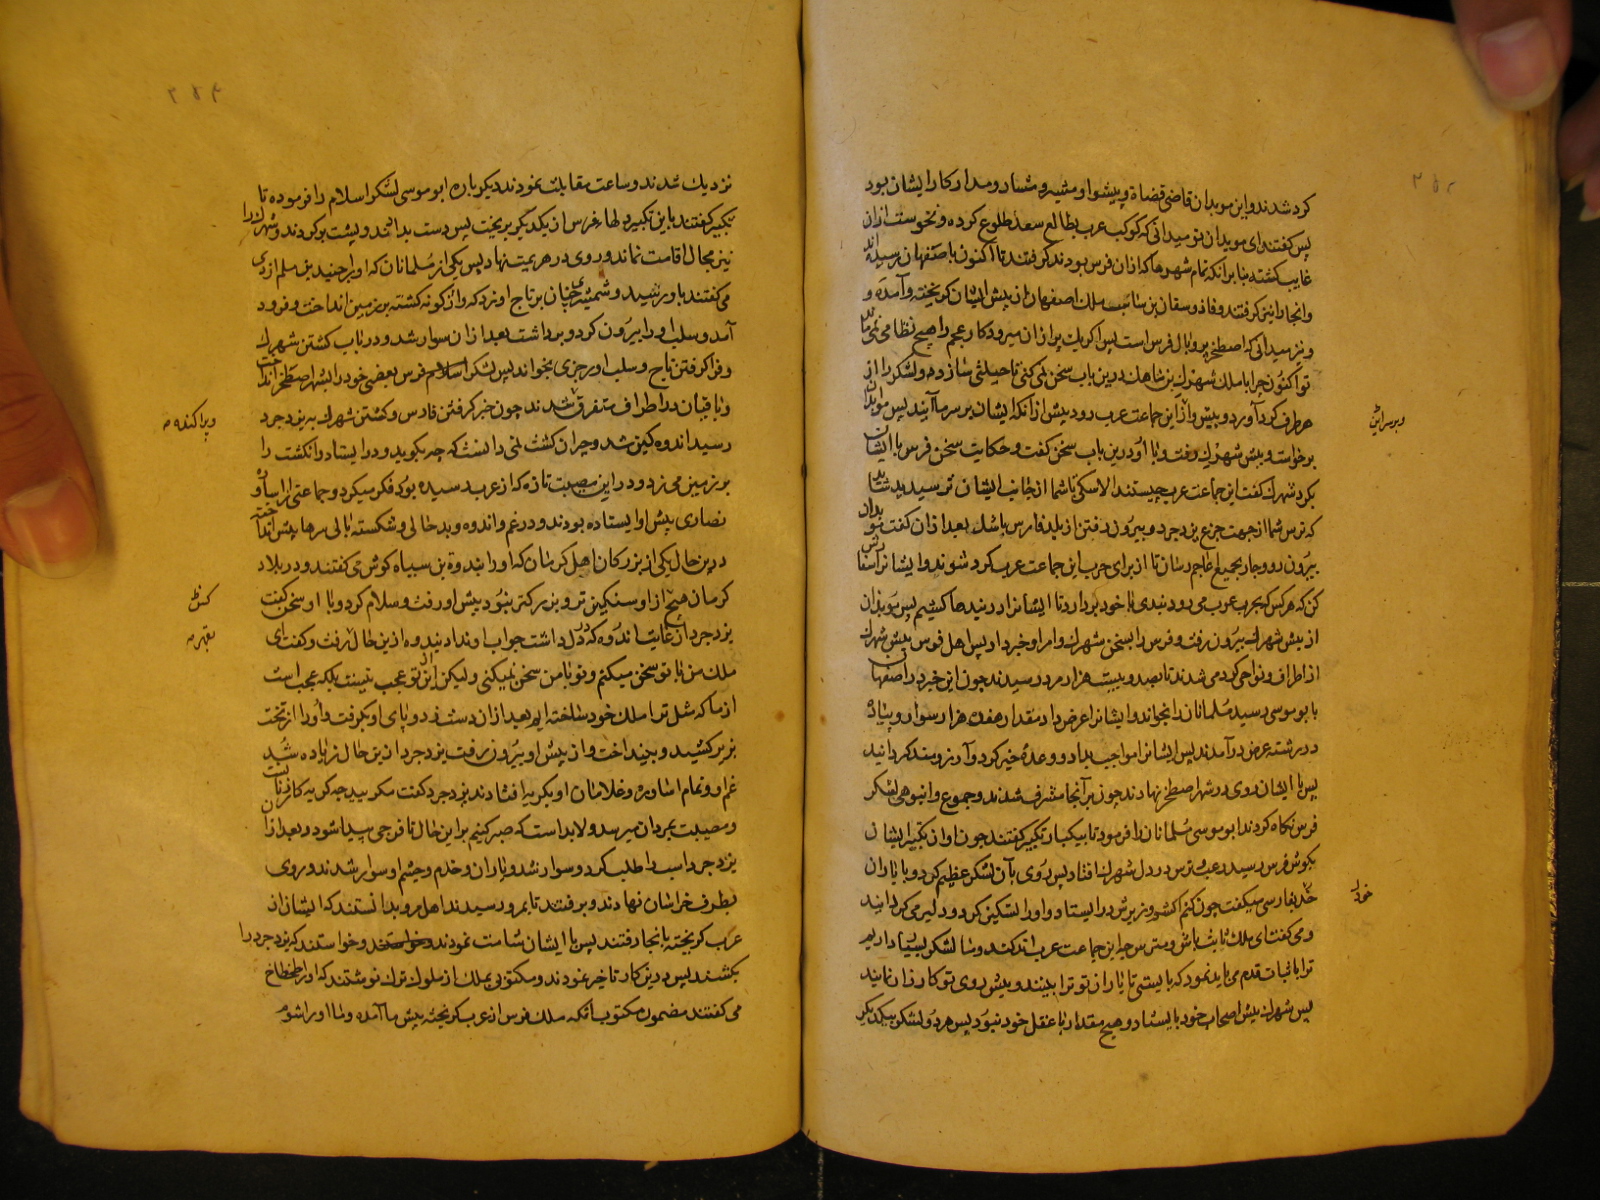 کرد شدند و این موبدان قاضی قضاة و پیشوا و مشیر و مدار کار ایشان بود
پس گفتند ای موبدان تو میدانی که کوکب عرب بطالع سعد طلوع کرده و نحوست ازان
غایب گشته بنا برانکه تمام شهرها که ازان فرس بودند گرفتند تا اکنون باصفهان رسیده اند
و انجا را نیز گرفتند و فاذوسقان پیش ایشان گریخته و آمده و
و نیز میدانی که اصطخر پر و بال فرس است پس اگر یک پر ازان میرود کار عجم را هیچ نظامی نمی ماند
تو اکنون چرا با ملک شهرک بن شاهک درین باب سخن نمی کنی تا حیلتی سازد و لشکر را از
هر طرف گرد آورد و پیش این جماعت عرب رود پیش ازانکه ایشان بر سر ما آیند پس موبدان
برخواست و پیش شهرک رفت و با او درین باب سخن گفت و حکایت سخن فرس با ایشان
بکرد شهرک گفت این جماعت عرب چیستند الا سگی تا شما از جانب ایشان ترسیدید
که ترس شما از جهت جزع یزدجرد و بیرون رفتن از بلد فارس باشد بعد ازان گفت
بیرون رو و جار بجمیع اعاجم رسان تا از برای حرب این جماعت عرب گرد شوند و ایشانرا
کن که هرکس که بحرب عرب می رود بندی با خود بردارد تا ایشانرا در بندها کشیم پس موبدان
از پیش شهرک بیرون رفت و فرس را بسخن شهرک و امر او خبر داد پس اهل فرس پیش شهرک
از اطراف و نواحی گرد می شدند تا بصد و بیست هزار مرد رسیدند چون این خبر در اصفهان
با بو موسی رسید مسلمانان را بخواند و ایشانرا عرض داد مقدار هفده هزار سوار و پیاده
در رشته عرض در آمدند پس ایشانرا مواجب بداد و وعده خیر کرد و
پس با ایشان روی در شهر اصطخر نهادند چون بر آنجا مشرف شدند و جموع و انبوهی لشکر
فرس نگاه کردند ابو موسی مسلمانان را فرمود تا بیکبار تکبیر گفتند چون آواز تکبیر ایشان
بگوش فرس رسید رعب و ترس در دل شهرک افتاد پس روی بآن لشکر عظیم کرد و با یاران
خود بفارسی میگفت چون کنم کشور وزیرش در ایستاد و او را تسکین کرد و دلیر می گردانید
و می گفت ای ملک ثابت باش و مترس چرا این جماعت عرب اندکند و ما لشکر بسیار داریم
ترا با ثبات قدم می باید نمود که بایستی تا یاران تو ترا ببینند و پیش روی تو کارزار نمایند
پس شهرک پیش اصحاب خود بایستاد و هیچ مقدار با عقل خود نبود پس هر دو لشکر بیکدیگر
نزدیک شدند و ساعت مقابلت نمودند دیگر باره ابو موسی لشکر اسلام را فرموده تا
تکبیر گفتند باین تکبیر دلهای فرس از یکدیگر بریخت پس دست بداشتند و پشت برگردند و شهرک را
نیز مجال اقامت نماند و روی در هزیمت نهاد پس یکی از مسلمانان که او را جنید بن سلم ازدی
می گفتند باو رسید و شمشیری چنان بر تاج او زد که واژگونه گشته بر زمین انداخت و فرود
آمد و سلب او را بیرون کرد و برداشت بعد ازان سوار شد و در باب کشتن شهرک
و فرا گرفتن تاج و سلب او رجزی بخواند پس لشکر اسلام فرس بعضی خود را بشهر اصطخر انداختند
و باقیان در اطراف متفرق شدند چون خبر گرفتن فارس و کشتن شهرک به یزدجرد
رسید اندوهگین شد و حیران گشت نمی دانست که چه بگوید و در ایستاد و انگشت را
بر زمین می زد و در این مصیبت تازه که از عرب رسیده بود فکر میکرد و جماعتی از اساوره
نصاری پیش او ایستاده بودند و در غم و اندوه و بدحالی و شکسته بالی سرها پیش انداخته
درین حال یکی از بزرگان اهل کرمان که او را بندوة بن سیاه گوش می گفتند و در بلاد
کرمان هیچ از او سنگین تر و بزرگتر نبود پیش او رفت و سلام کرد و با او سخن گفت
یزدجرد از غایت اندوه که در دل داشت جواب او نداد بندوه ازین حال برفت و گفت ای
ملک من با تو سخن میکنم و تو با من سخن نمیکنی و لیکن این از تو عجب نیست بلکه عجب است
از ما که مثل ترا ملک خود ساخته ایم بعد ازان دست زد و پای او بگرفت و او را از تخت
بزیر کشید و بینداخت و از پیش او بیرون رفت یزدجرد ازین حال زیاده شد
غم او و تمام اساوره و غلامان او بگریه افتادند یزدجرد گفت مگریید چه گریه کار زنانست
و مصیبت بمردان میرسد و لابد است که صبر کنیم بر این حال تا فرجی پیدا شود و بعد ازان
یزدجرد اسب را طلب کرد و سوار شد و یاران و خدم و حشم او سوار شدند و روی
بطرف خراسان نهادند و برفتند تا بمرو رسیدند اهل مرو بدانستند که ایشان از
عرب گریخته بآنجا رفتند پس با ایشان شامت نمودند و خواستند که یزدجرد را
بکشند پس درین کار تاخر نمودند و مکتوبی بملک از ملوک ترک نوشتند که او را طخطاخ
می گفتند مضمون مکتوب آنکه ملک فرس از عرب گریخته پیش ما آمده و ما او را شوم
ویراکنده
خود